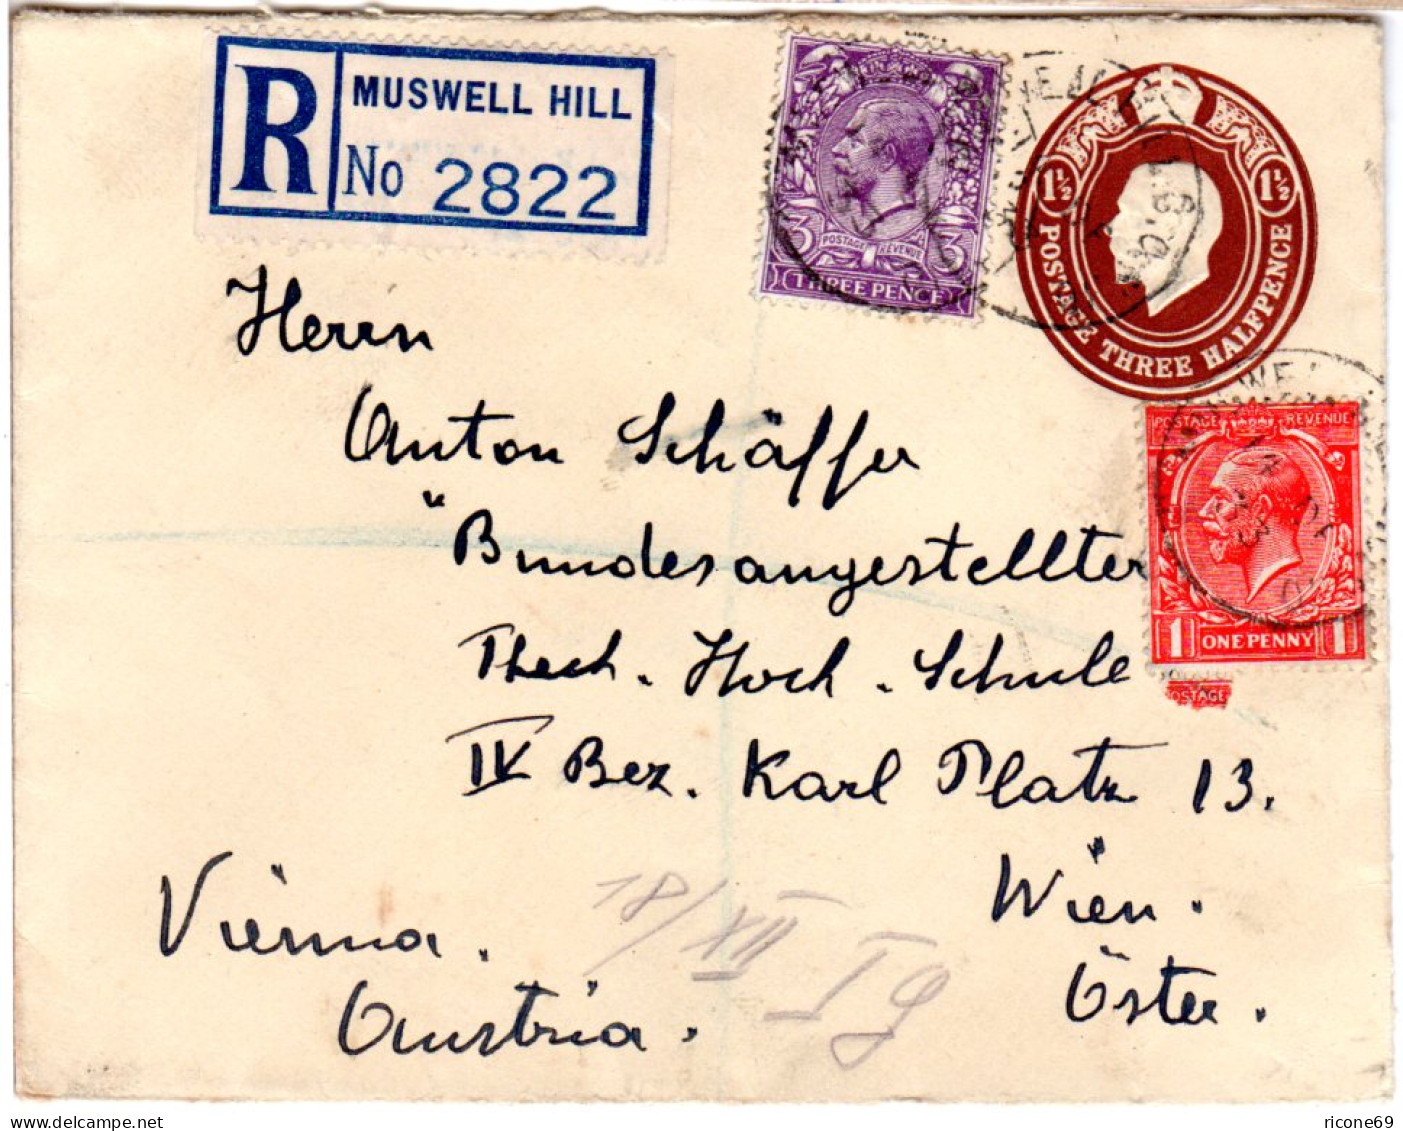 R MUSWELL HILL
No 2822
3 POSTAGE REVENUE 3
THREE PENCE
1½ 1½
POSTAGE THREE HALFPENCE
Herrn
Anton Schäffer
"Bundesangestellter
Thech. Hoch. Schule
IV Bez. Karl Platz 13.
Wien.
Öster.
Vienna.
Austria.
18/XII
POSTAGE REVENUE
1 ONE PENNY 1
POSTAGE
delcampe.net
ricone69